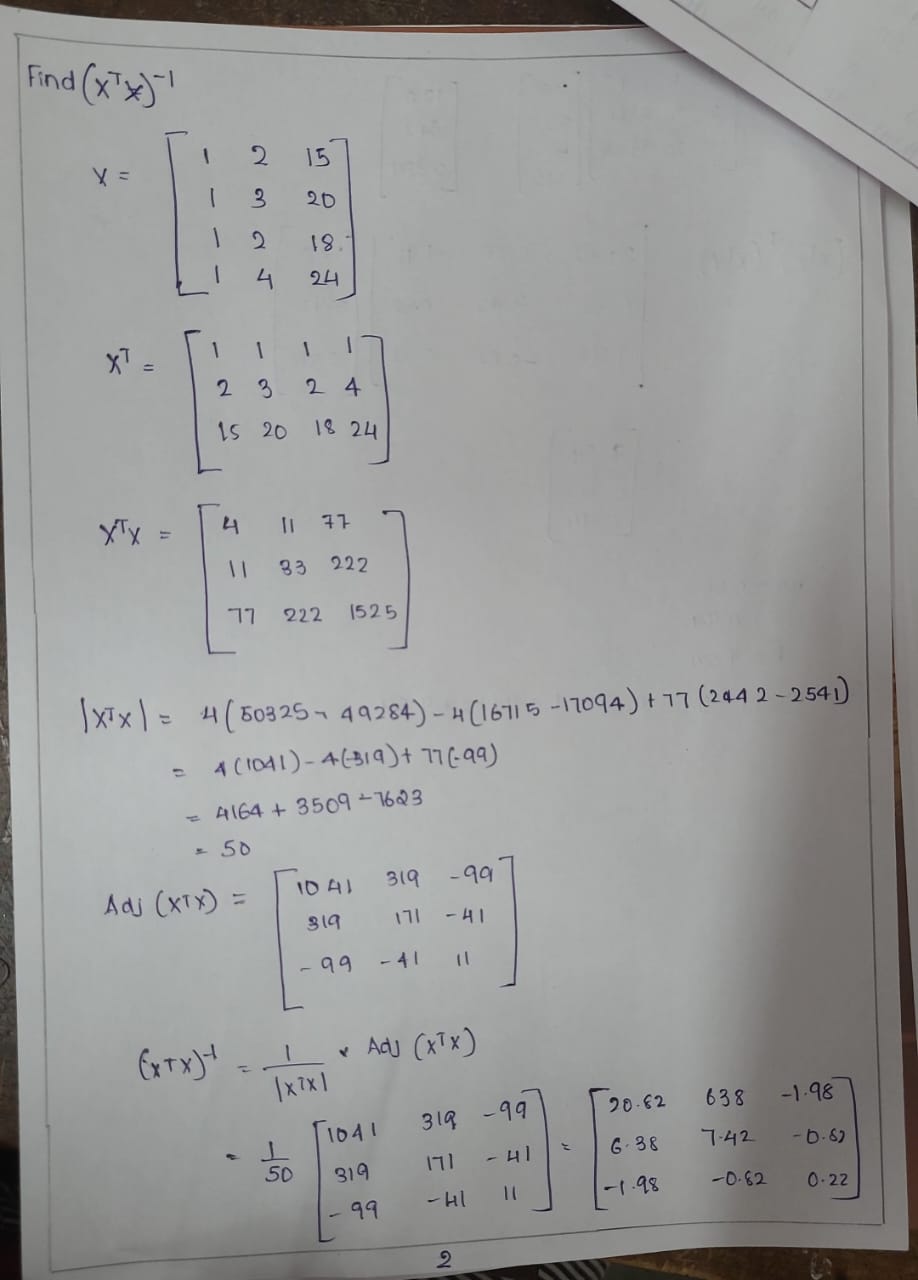 Find (XᵀX)⁻¹
X = [ 1 2 15
1 3 20
1 2 18
1 4 24 ]
Xᵀ = [ 1 1 1 1
2 3 2 4
15 20 18 24 ]
XᵀX = [ 4 11 77
11 33 222
77 222 1525 ]
|XᵀX| = 4(50325 - 49284) - 4(16715 - 17094) + 77(2442 - 2541)
= 4(1041) - 4(-319) + 77(-99)
= 4164 + 3509 - 7623
= 50
Adj (XᵀX) = [ 1041 319 -99
319 171 -41
-99 -41 11 ]
(XᵀX)⁻¹ = 1/|XᵀX| * Adj (XᵀX)
= 1/50 [ 1041 319 -99
319 171 -41
-99 -41 11 ] = [ 20.82 638 -1.98
6.38 7.42 -0.82
-1.98 -0.82 0.22 ]
2